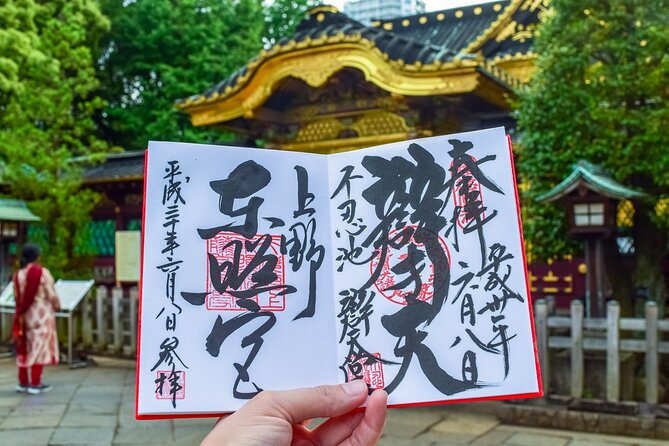 奉拝
平成卅年
六月八日
辯才天
不忍池
上野
東照宮
平成三十年六月八日参拝